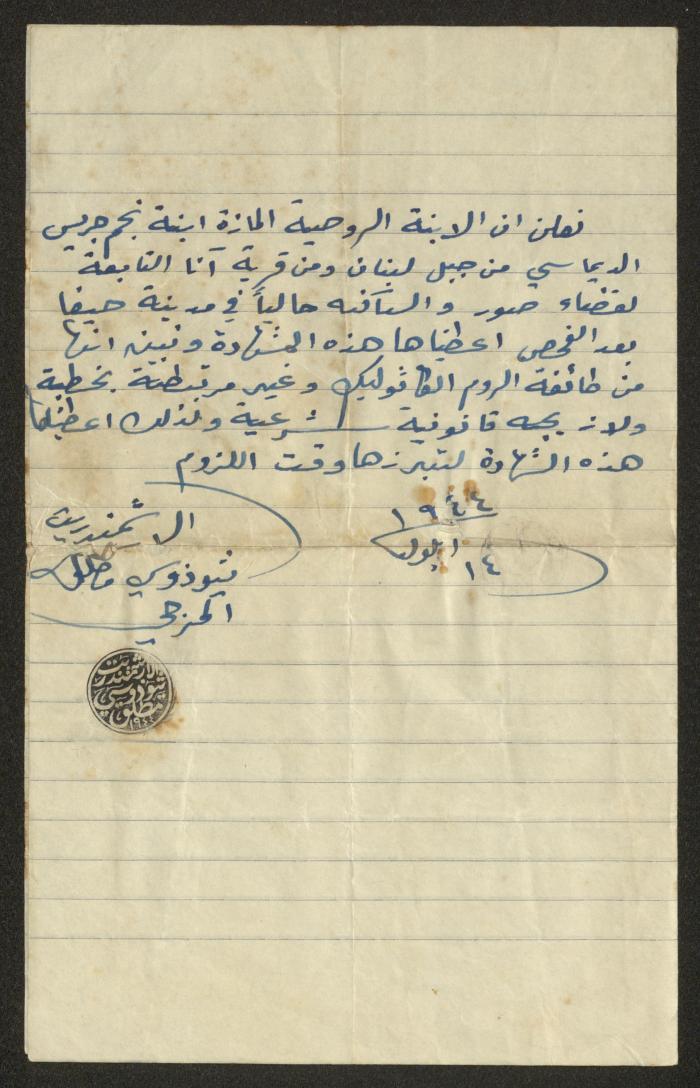 نعلن ان الابنة الروحية المازة ابنة نجم جريس
الديماسي من جبل لبنان ومن قرية آنا التابعة
لقضاء صور والساكنه حالياً في مدينة حيفا
بعد الفحص اعطيناها هذه الشهادة وتبين انها
من طائفة الروم الكاثوليك وغير مرتبطة بخطبة
ولا زيجه قانونية شرعية ولذلك اعطيناها
هذه الشهادة لتبرزها وقت اللزوم
١٩٤٤
١٤ ايلول
الارشمندريت
ثيوذوسي مطلق
الارشمندريت
ثيودوسي
مطلق